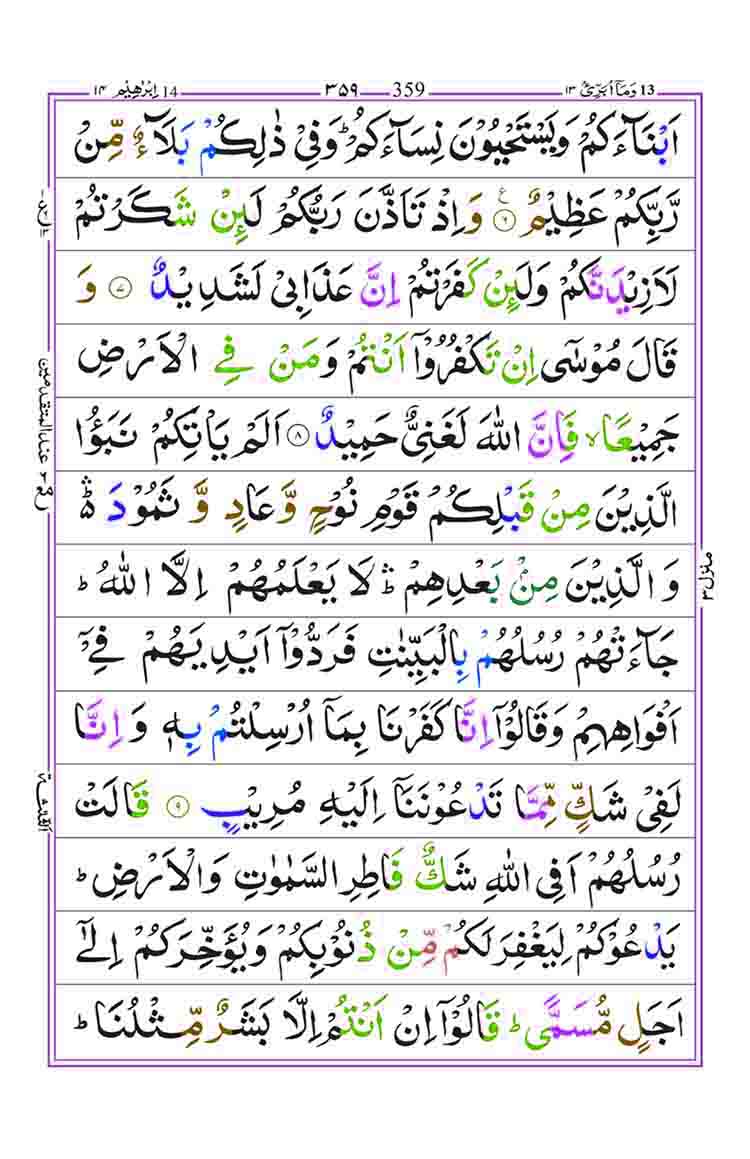 13 وَمَآ اُبَرِّئُ ۱۳
359 ۳۵۹
14 اِبْرٰهِيْم ۱۴
اَبْنَآءَكُمْ وَيَسْتَحْيُوْنَ نِسَآءَكُمْ ؕ وَفِيْ ذٰلِكُمْ بَلَآءٌ مِّنْ
رَّبِّكُمْ عَظِيْمٌ ۶ وَاِذْ تَاَذَّنَ رَبُّكُمْ لَئِنْ شَكَرْتُمْ
لَاَزِيْدَنَّكُمْ وَلَئِنْ كَفَرْتُمْ اِنَّ عَذَابِيْ لَشَدِيْدٌ ۷ وَ
قَالَ مُوْسٰٓى اِنْ تَكْفُرُوْٓا اَنْتُمْ وَمَنْ فِي الْاَرْضِ
جَمِيْعًا ۙ فَاِنَّ اللّٰهَ لَغَنِيٌّ حَمِيْدٌ ۸ اَلَمْ يَاْتِكُمْ نَبَؤُا
الَّذِيْنَ مِنْ قَبْلِكُمْ قَوْمِ نُوْحٍ وَّعَادٍ وَّ ثَمُوْدَ ۛؕ
وَ الَّذِيْنَ مِنْۢ بَعْدِهِمْ ۛؕ لَا يَعْلَمُهُمْ اِلَّا اللّٰهُ ؕ
جَآءَتْهُمْ رُسُلُهُمْ بِالْبَيِّنٰتِ فَرَدُّوْٓا اَيْدِيَهُمْ فِيْٓ
اَفْوَاهِهِمْ وَقَالُوْٓا اِنَّا كَفَرْنَا بِمَآ اُرْسِلْتُمْ بِهٖ وَ اِنَّا
لَفِيْ شَكٍّ مِّمَّا تَدْعُوْنَنَآ اِلَيْهِ مُرِيْبٍ ۹ قَالَتْ
رُسُلُهُمْ اَفِي اللّٰهِ شَكٌّ فَاطِرِ السَّمٰوٰتِ وَالْاَرْضِ ؕ
يَدْعُوْكُمْ لِيَغْفِرَ لَكُمْ مِّنْ ذُنُوْبِكُمْ وَيُؤَخِّرَكُمْ اِلٰٓى
اَجَلٍ مُّسَمًّى ؕ قَالُوْٓا اِنْ اَنْتُمْ اِلَّا بَشَرٌ مِّثْلُنَا ؕ
منزل۳
عند المتقدمين
الثلثة